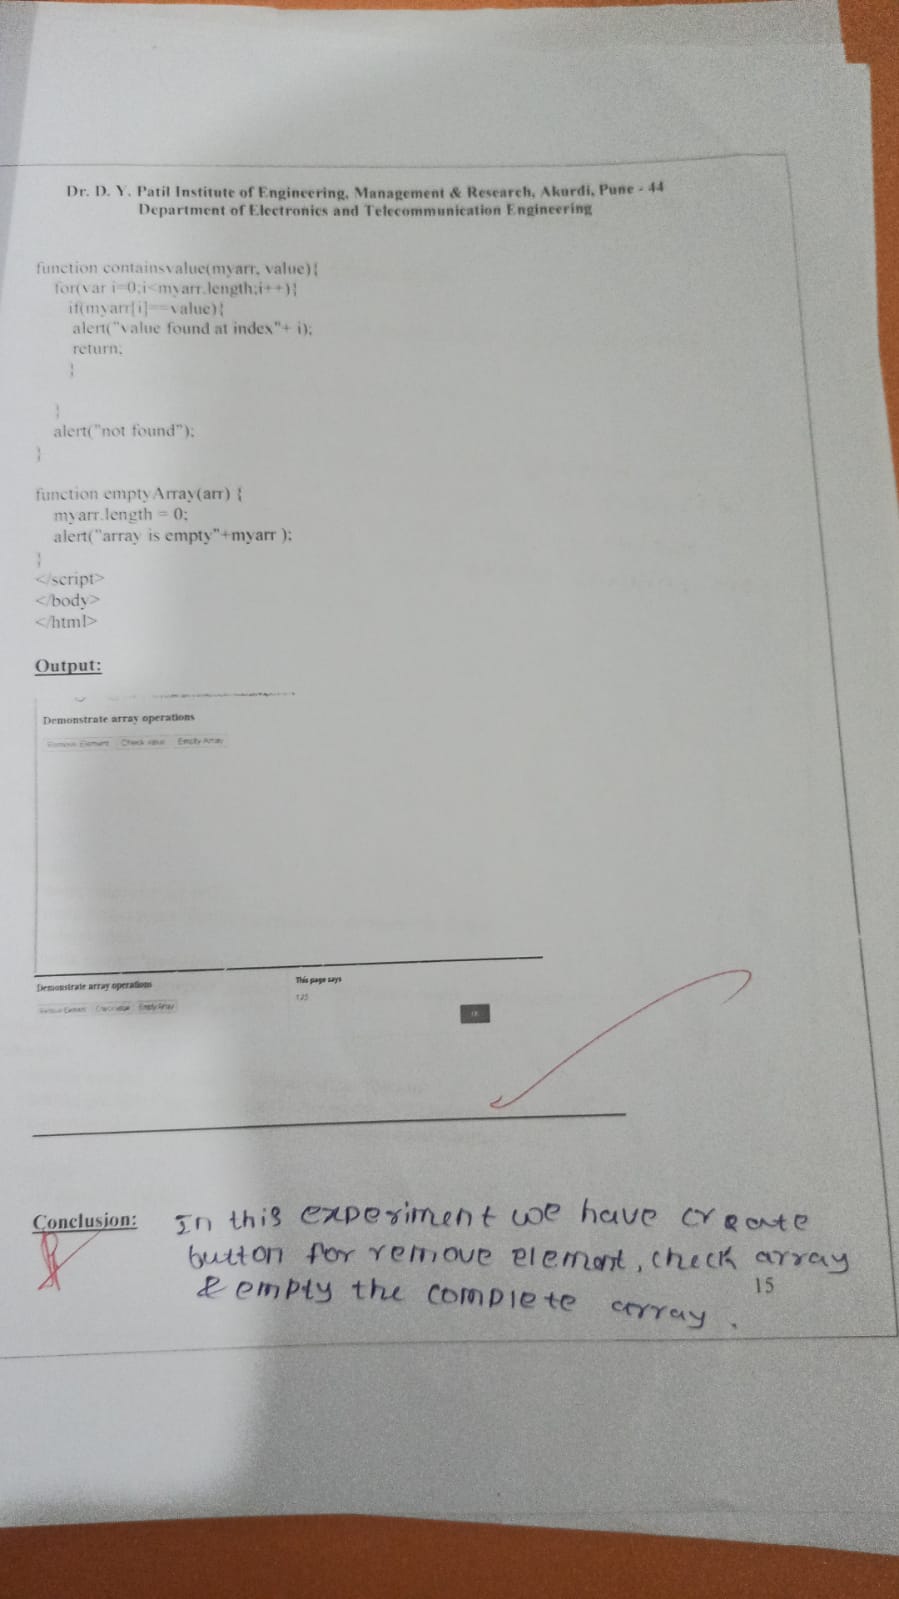 Dr. D. Y. Patil Institute of Engineering, Management & Research, Akurdi, Pune - 44
Department of Electronics and Telecommunication Engineering
function containsvalue(myarr, value){
for(var i=0;i<myarr.length;i++){
if(myarr[i]==value){
alert("value found at index"+ i);
return;
}
}
alert("not found");
}
function emptyArray(arr) {
myarr.length = 0;
alert("array is empty"+myarr );
}
</script>
</body>
</html>
Output:
Demonstrate array operations
Remove Element Check value Empty Array
Demonstrate array operations This page says
Remove Element Check value Empty Array 1,2,5
OK
Conclusion: In this experiment we have create
button for remove element, check array
& empty the complete array.
15